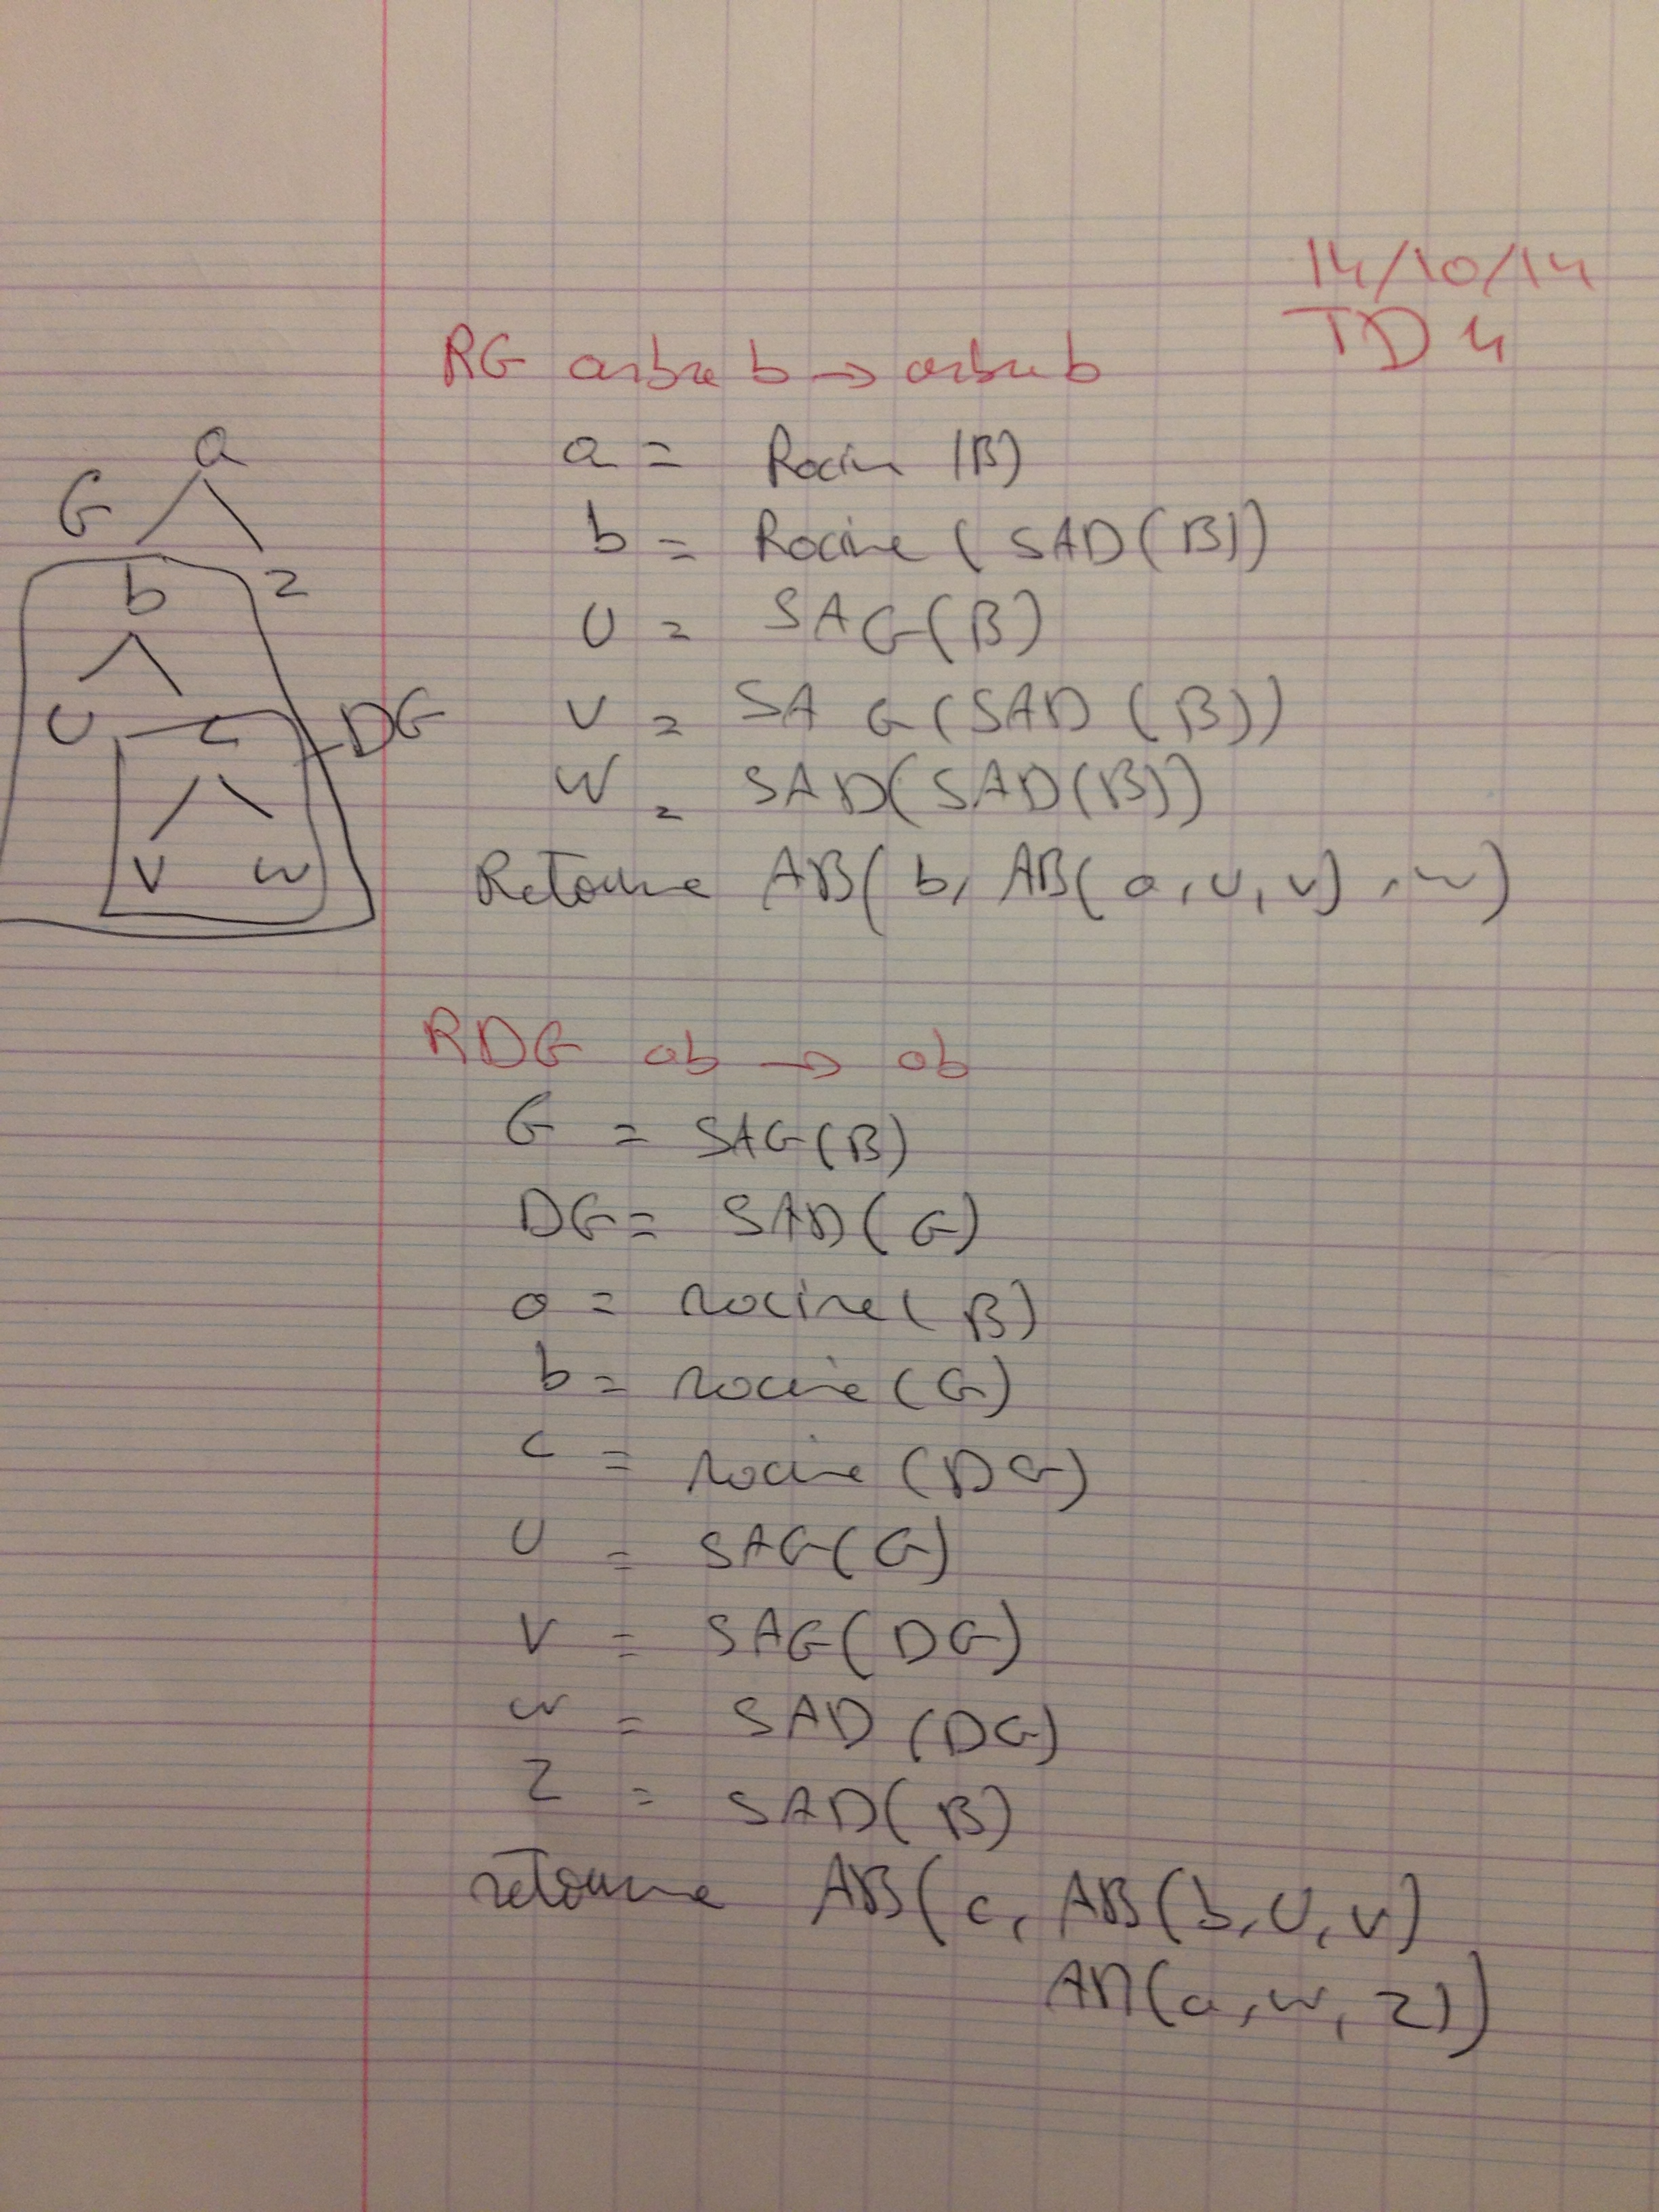 14/10/14
TD 4
RG arbre b → arbre b
a = Racine (B)
b = Racine (SAD(B))
U = SAG(B)
V = SAG(SAD(B))
W = SAD(SAD(B))
Retourne AB(b, AB(a, u, v), w)
a
G
b z
U c DG
V w
RDG ab → ab
G = SAG(B)
DG = SAD(G)
a = racine(B)
b = racine(G)
c = racine(DG)
U = SAG(G)
V = SAG(DG)
w = SAD(DG)
Z = SAD(B)
retourne AB(c, AB(b, U, v)
AB(a, w, z))